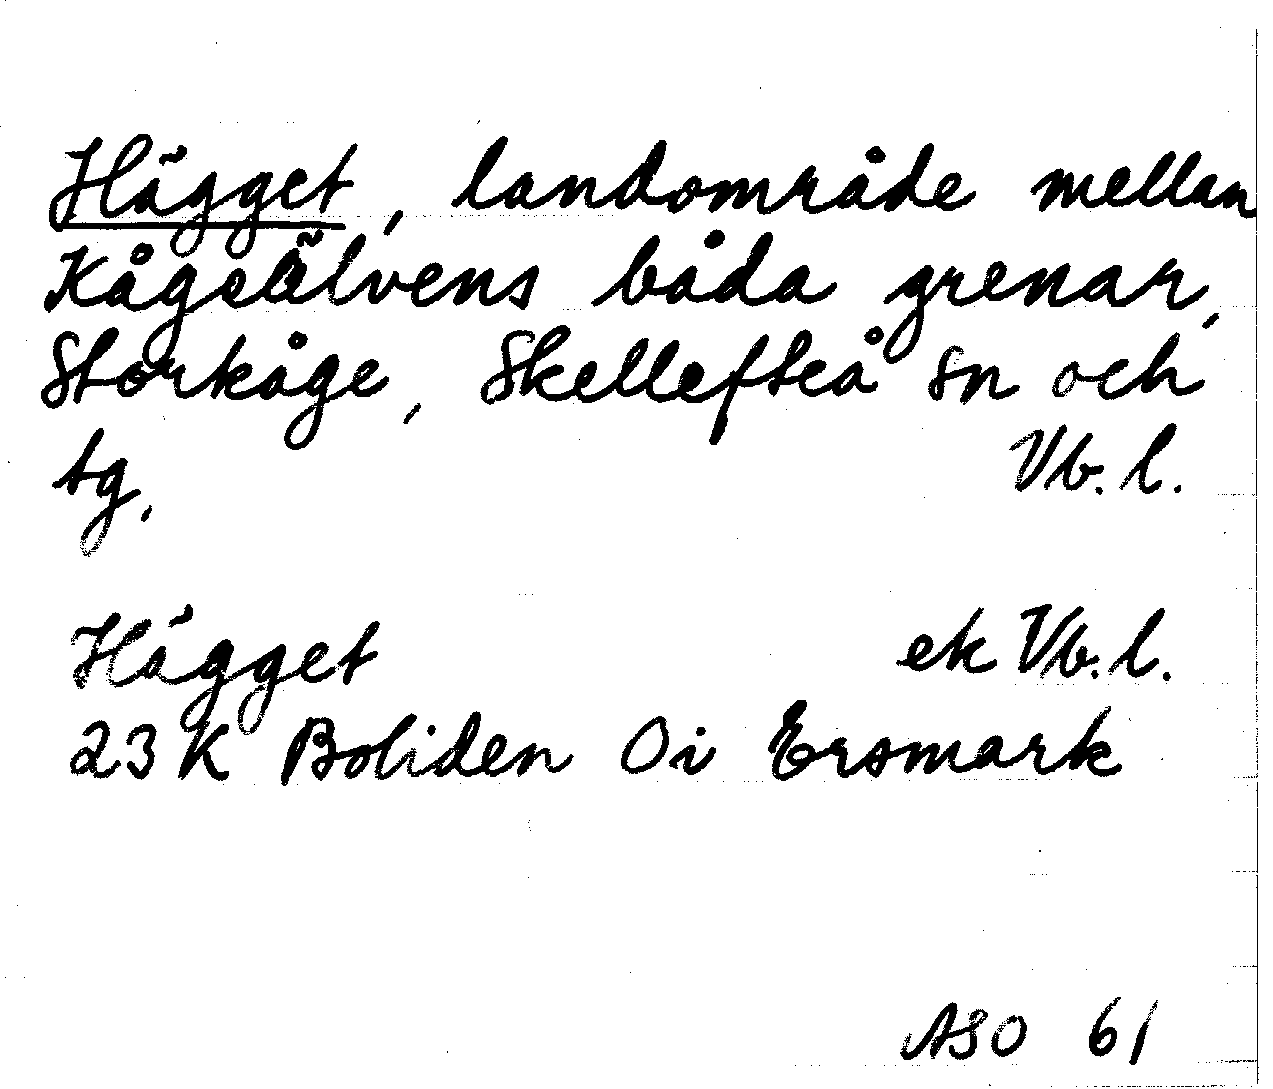 Hägget, landområde mellan
Kågeälvens båda grenar,
Storkåge, Skellefteå sn och
tg, Vb. l.
Hägget ek Vb. l.
23 K Boliden 0i Ersmark
ASO 61